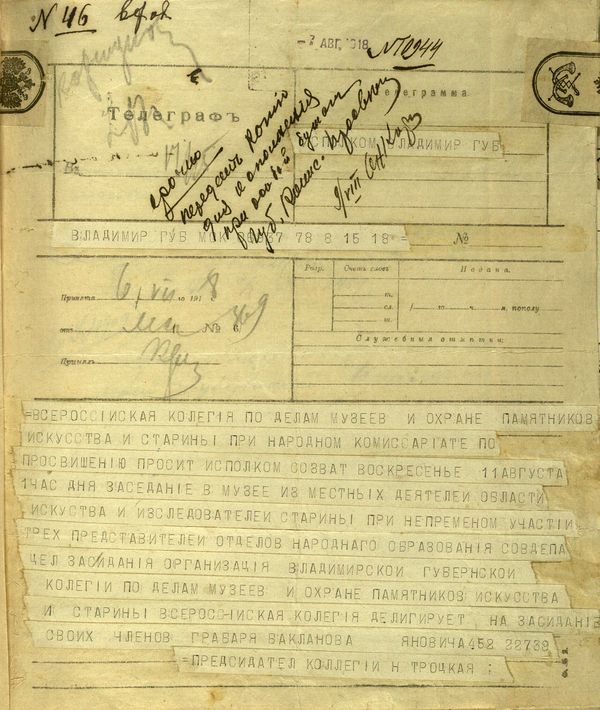 N 46
- 7 АВГ. 1918
N 12944
Телеграфъ
Телеграмма
ИСПОЛКОМ ВЛАДИМИР ГУБ
срочно
передать копию
для исполнения
при особой бумаге
губ.
ВЛАДИМИР ГУБ МСК 36367 78 8 15 18 =
№
Разр.
Счетъ словъ
Подана.
Принята 6/VII го 191 8
т.
сл.
т.
го ч. м. пополу
отъ № 369
Служебныя отмѣтки:
Принялъ
=ВСЕРОССІЙСКАЯ КОЛЕГІЯ ПО ДЕЛАМ МУЗЕЕВ И ОХРАНЕ ПАМЯТНИКОВ
ИСКУССТВА И СТАРИНЫ ПРИ НАРОДНОМ КОМИССАРІАТЕ ПО
ПРОСВИШЕНІЮ ПРОСИТ ИСПОЛКОМ СОЗВАТ ВОСКРЕСЕНЬЕ 11 АВГУСТА
1ЧАС ДНЯ ЗАСЕДАНІЕ В МУЗЕЕ ИЗ МЕСТНЫХ ДЕЯТЕЛЕЙ ОБЛАСТИ
ИСКУСТВА И ИЗСЛЕДОВАТЕЛЕЙ СТАРИНЫ ПРИ НЕПРЕМЕНОМ УЧАСТІИ
ТРЕХ ПРЕДСТАВИТЕЛЕЙ ОТДЕЛОВ НАРОДНАГО ОБРАЗОВАНІЯ СОВДЕПА
ЦЕЛ ЗАСИДАНІЯ ОРГАНИЗАЦІЯ ВЛАДИМИРСКОЙ ГУБЕРНСКОЙ
КОЛЕГІИ ПО ДЕЛАМ МУЗЕЕВ И ОХРАНЕ ПАМЯТНИКОВ ИСКУССТВА
И СТАРИНЫ ВСЕРОССІЙСКАЯ КОЛЕГІЯ ДЕЛИГИРУЕТ НА ЗАСИДАНІЕ
СВОИХ ЧЛЕНОВ ГРАБАРЯ ВАКЛАНОВА ЯНОВИЧА 452 22738
=ПРЕДСИДАТЕЛ КОЛЛЕГІИ Н ТРОЦКАЯ ;